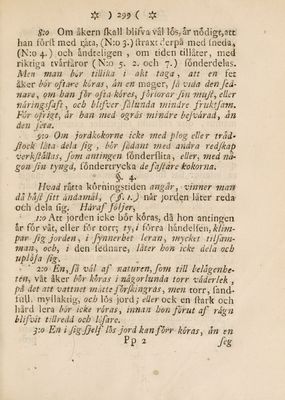 ☼ ) 299 ( ☼
8:o Om åkern skall blifva väl lös, är nödigt, att
han först med råta, (N:o 3.) strax derpå med ineda,
(N:o 4.) och ändteligen, om tiden tillåter, med
riktiga tvärfåror (N:o 5. 2. och 7.) sönderdelas.
Men man bör tillika i akt taga, att en fet
åker bör oftare köras, än en mager, så vida den sed-
nare, om han för ofta köres, förlorar sin must, eller
näringssaft, och blifver sålunda mindre fruktsam.
För öfrigt, är han med ogräs mindre besvärad, än
den feta.
9:o Om jordkokorne icke med plog eller träd-
stock låta dela sig, bör sådant med andra redskap
verkställas, som antingen sönderslita, eller, med nå-
gon sin tyngd, söndertrycka de fastare kokorna.
§. 4.
Hvad råtta körningstiden angår, vinner man
då bäst sitt ändamål, (§. 1.) när jorden låter reda
och dela sig. Häraf följer,
1:o Att jorden icke bör köras, då hon antingen
är för våt, eller för torr; ty, i förra händelsen, klim-
par sig jorden, i synnerhet leran, mycket tilsam-
man, och, i den sednare, låter hon icke dela och
uplösa sig.
2:o En, så väl af naturen, som till belägenhe-
ten, våt åker bör köras i någorlunda torr väderlek,
på det att vattnet måtte förskingras, men torr, sand-
full, myllaktig, och lös jord; eller ock en stark och
hård lera bör icke röras, innan hon förut af rägn
blifvit tillredd och lösare.
3:o En i sig sjelf lös jord kan förr köras, än en
Pp 2 seg